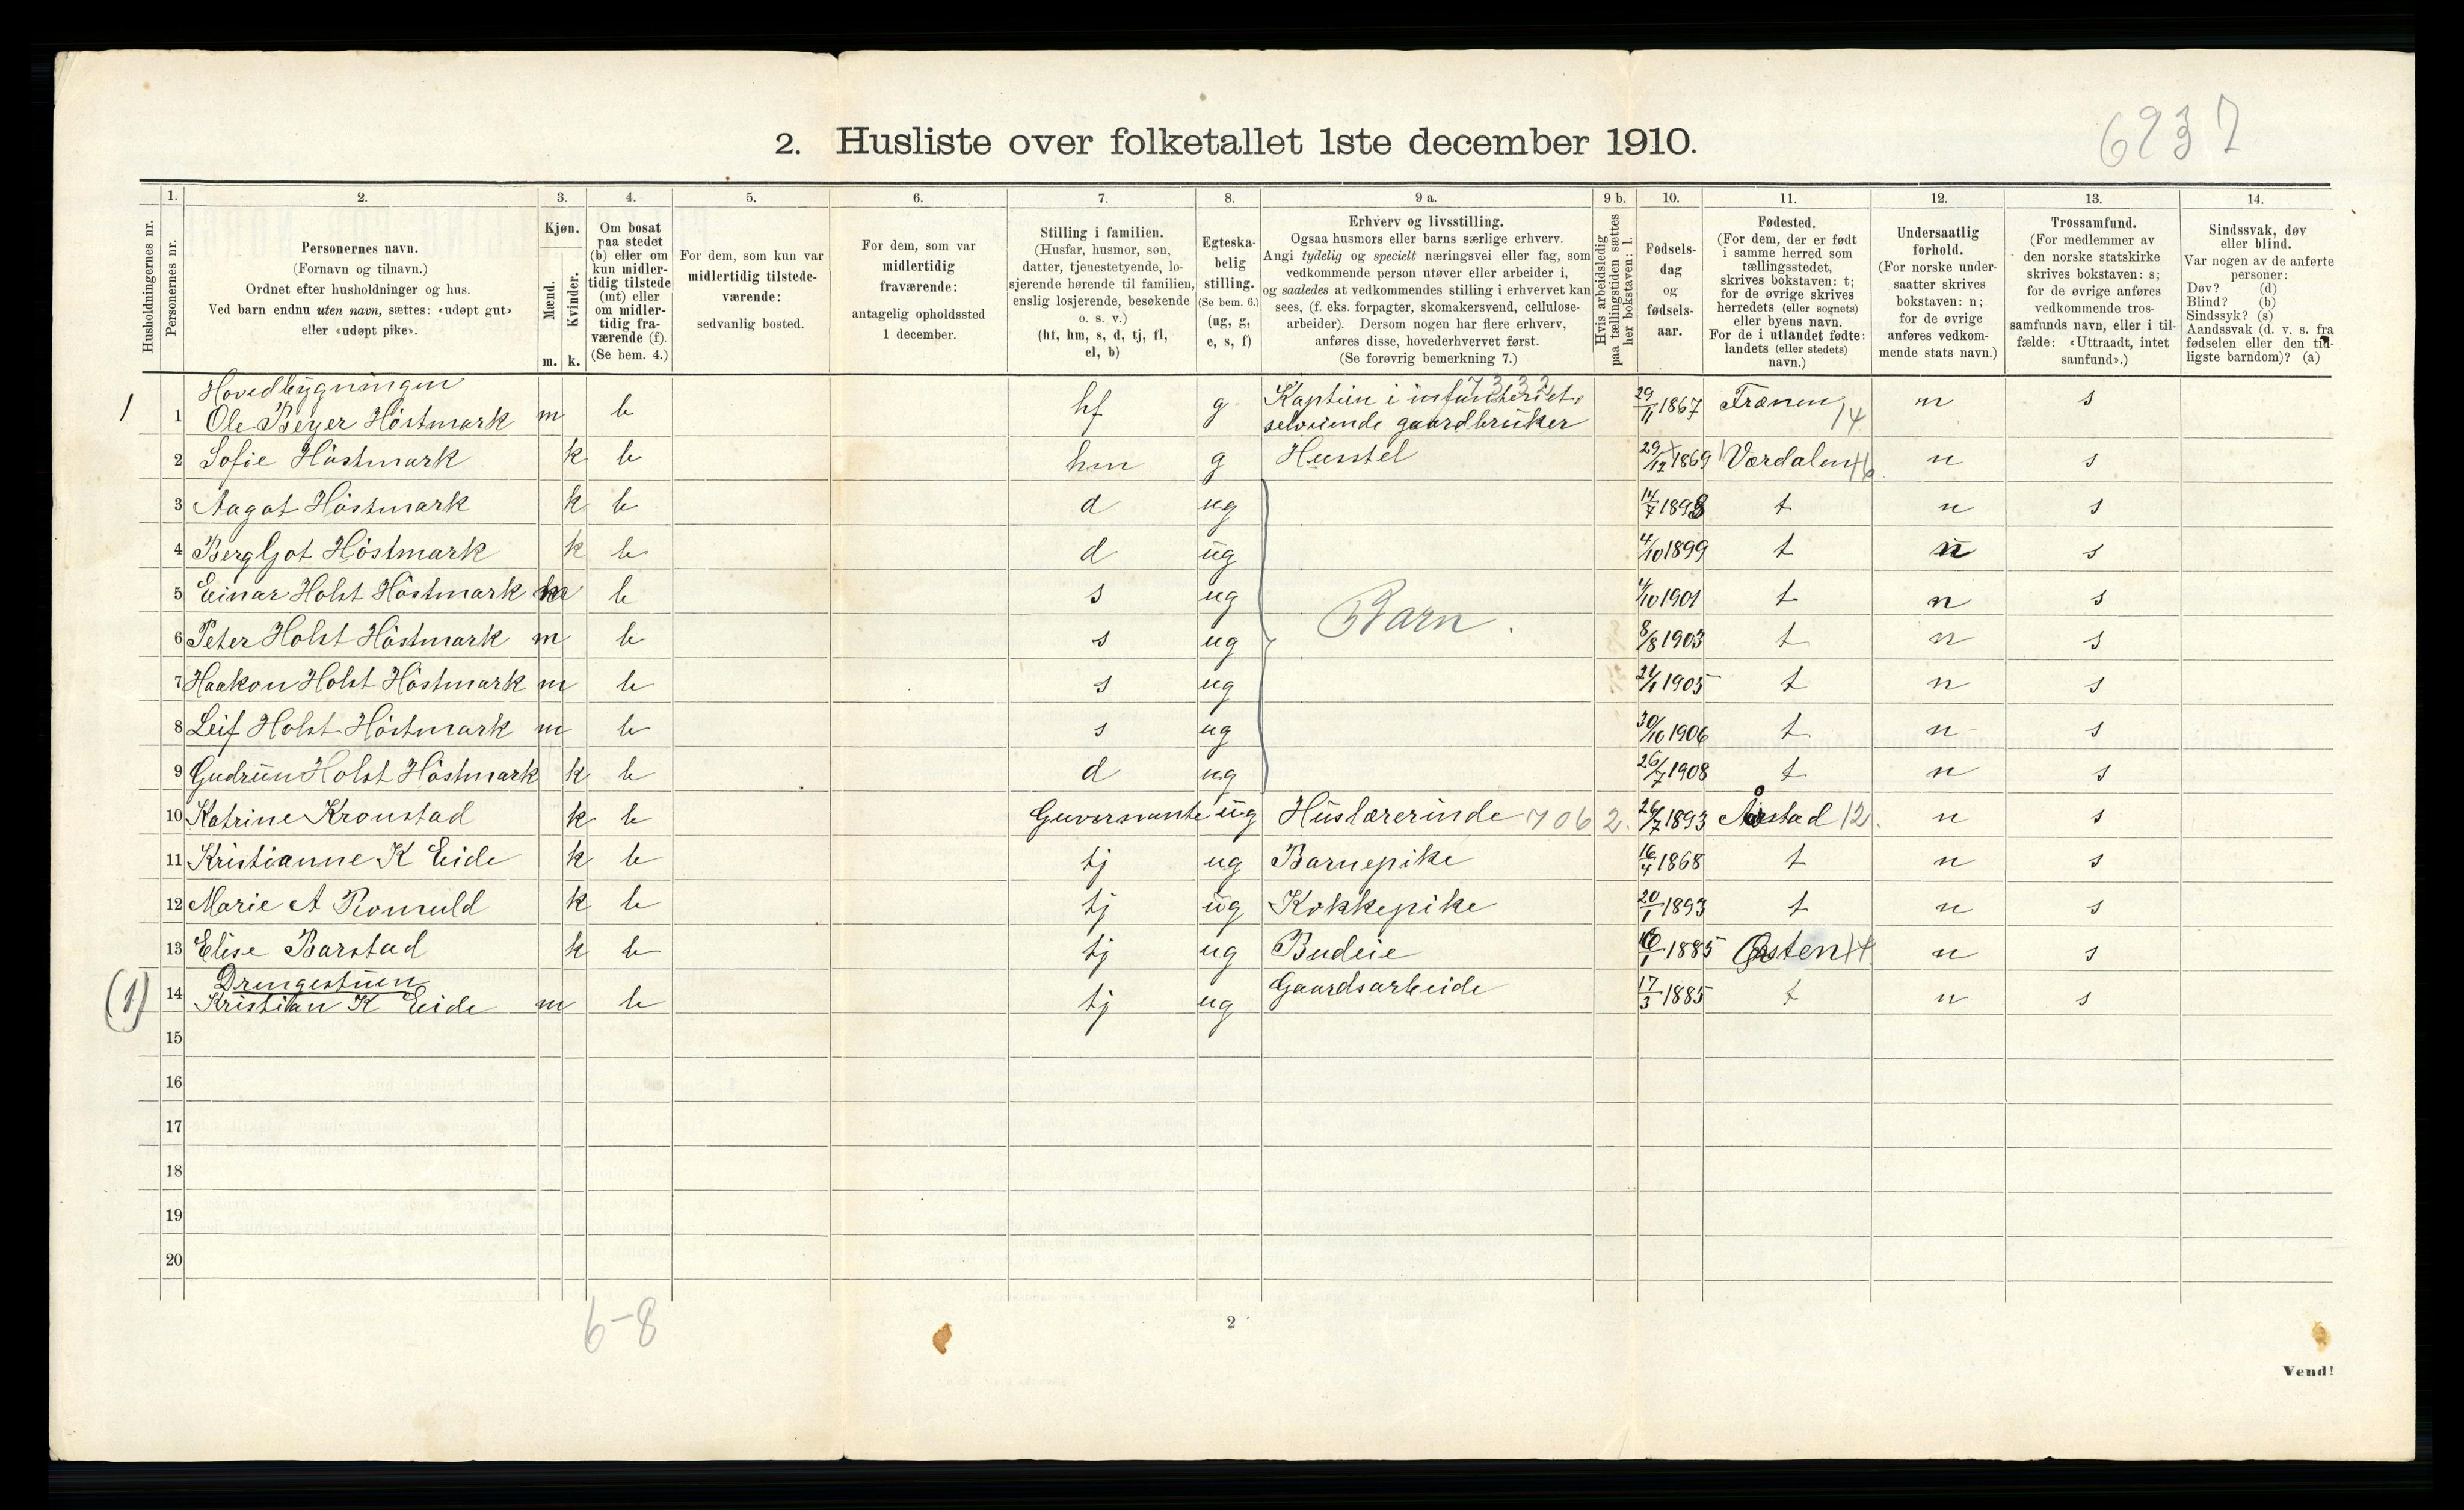 6237
2. Husliste over folketallet 1ste december 1910.
Husholdningernes nr.
1.
Personernes nr.
2.
Personernes navn.
(Fornavn og tilnavn.)
Ordnet efter husholdninger og hus.
Ved barn endnu uten navn, sættes: «udøpt gut»
eller «udøpt pike».
3.
Kjøn.
Mænd.
Kvinder.
m. k.
4.
Om bosat
paa stedet
(b) eller om
kun midler-
tidig tilstede
(mt) eller
om midler-
tidig fra-
værende (f).
(Se bem. 4.)
5.
For dem, som kun var
midlertidig tilstede-
værende:
sedvanlig bosted.
6.
For dem, som var
midlertidig
fraværende:
antagelig opholdssted
1 december.
7.
Stilling i familien.
(Husfar, husmor, søn,
datter, tjenestetyende, lo-
sjerende hørende til familien,
enslig losjerende, besøkende
o. s. v.)
(hf, hm, s, d, tj, fl,
el, b)
8.
Egteska-
belig
stilling.
(Se bem. 6.)
(ug, g,
e, s, f)
9 a.
Erhverv og livsstilling.
Ogsaa husmors eller barns særlige erhverv.
Angi tydelig og specielt næringsvei eller fag, som
vedkommende person utøver eller arbeider i,
og saaledes at vedkommendes stilling i erhvervet kan
sees, (f. eks. forpagter, skomakersvend, cellulose-
arbeider). Dersom nogen har flere erhverv,
anføres disse, hovederhvervet først.
(Se forøvrig bemerkning 7.)
9 b.
Hvis arbeidsledig
paa tællingstiden sættes
her bokstaven: l.
10.
Fødsels-
dag
og
fødsels-
aar.
11.
Fødested.
(For dem, der er født
i samme herred som
tællingsstedet,
skrives bokstaven: t;
for de øvrige skrives
herredets (eller sognets)
eller byens navn.
For de i utlandet fødte:
landets (eller stedets)
navn.)
12.
Undersaatlig
forhold.
(For norske under-
saatter skrives
bokstaven: n;
for de øvrige
anføres vedkom-
mende stats navn.)
13.
Trossamfund.
(For medlemmer av
den norske statskirke
skrives bokstaven: s;
for de øvrige anføres
vedkommende tros-
samfunds navn, eller i til-
fælde: «Uttraadt, intet
samfund».)
14.
Sindssvak, døv
eller blind.
Var nogen av de anførte
personer:
Døv? (d)
Blind? (b)
Sindssyk? (s)
Aandssvak (d. v. s. fra
fødselen eller den tid-
ligste barndom)? (a)
Hovedbygningen
Kaptein i infanteriet,
1 1 Ole Beyer Höstmark m b hf g selveiende gaardbruker 29/11 1867 Frænen 14 n s
2 Sofie Höstmark k b hm g Husstel 29/12 1869 Værdalen 16 n s
3 Aagot Höstmark k b d ug 14/7 1898 t n s
4 Bergljot Höstmark k b d ug 4/10 1899 t n s
5 Einar Holst Höstmark m b s ug 4/10 1901 t n s
Barn.
6 Peter Holst Höstmark m b s ug 8/8 1903 t n s
7 Haakon Holst Höstmark m b s ug 21/1 1905 t n s
8 Leif Holst Höstmark m b s ug 30/10 1906 t n s
9 Gudrun Holst Höstmark k b d ug 26/7 1908 t n s
10 Katrine Kronstad k b Guvernante ug Huslærerinde 706 2. 26/7 1893 Årstad 12. n s
11 Kristianne K Eide k b tj ug Barnepike 16/4 1868 t n s
12 Marie A Romuld k b tj ug Kokkepike 20/1 1893 t n s
13 Elise Barstad k b tj ug Budeie 1885 Ørsten 14 n s
Drengestuen
(1) 14 Kristian K Eide m b tj ug Gaardsarbeide 17/3 1885 t n s
15
16
17
18
19
20
6-8
2
Vend!